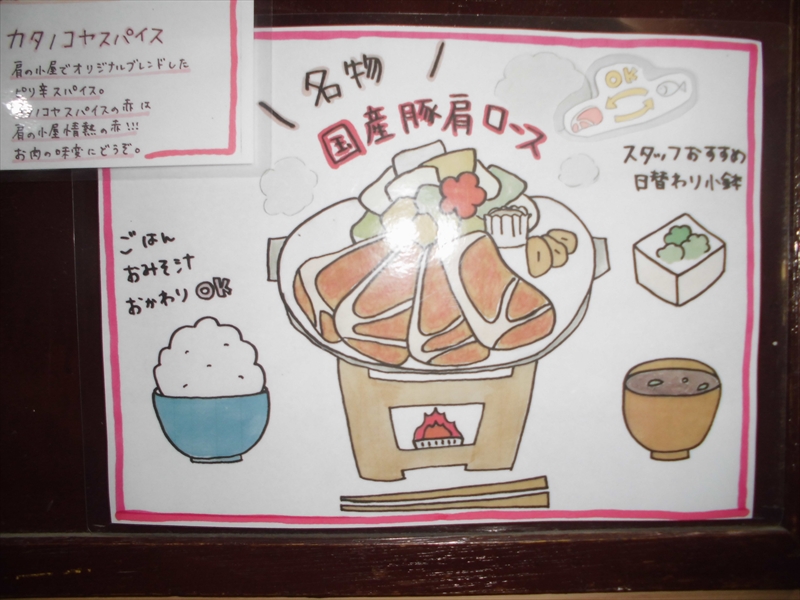 カタノコヤスパイス
肩の小屋でオリジナルブレンドした
ピリ辛スパイス。
カタノコヤスパイスの赤は
肩の小屋情熱の赤!!!
お肉の味変にどうぞ。
名物
国産豚肩ロース
OK
スタッフおすすめ
日替わり小鉢
ごはん
おみそ汁
おかわりOK